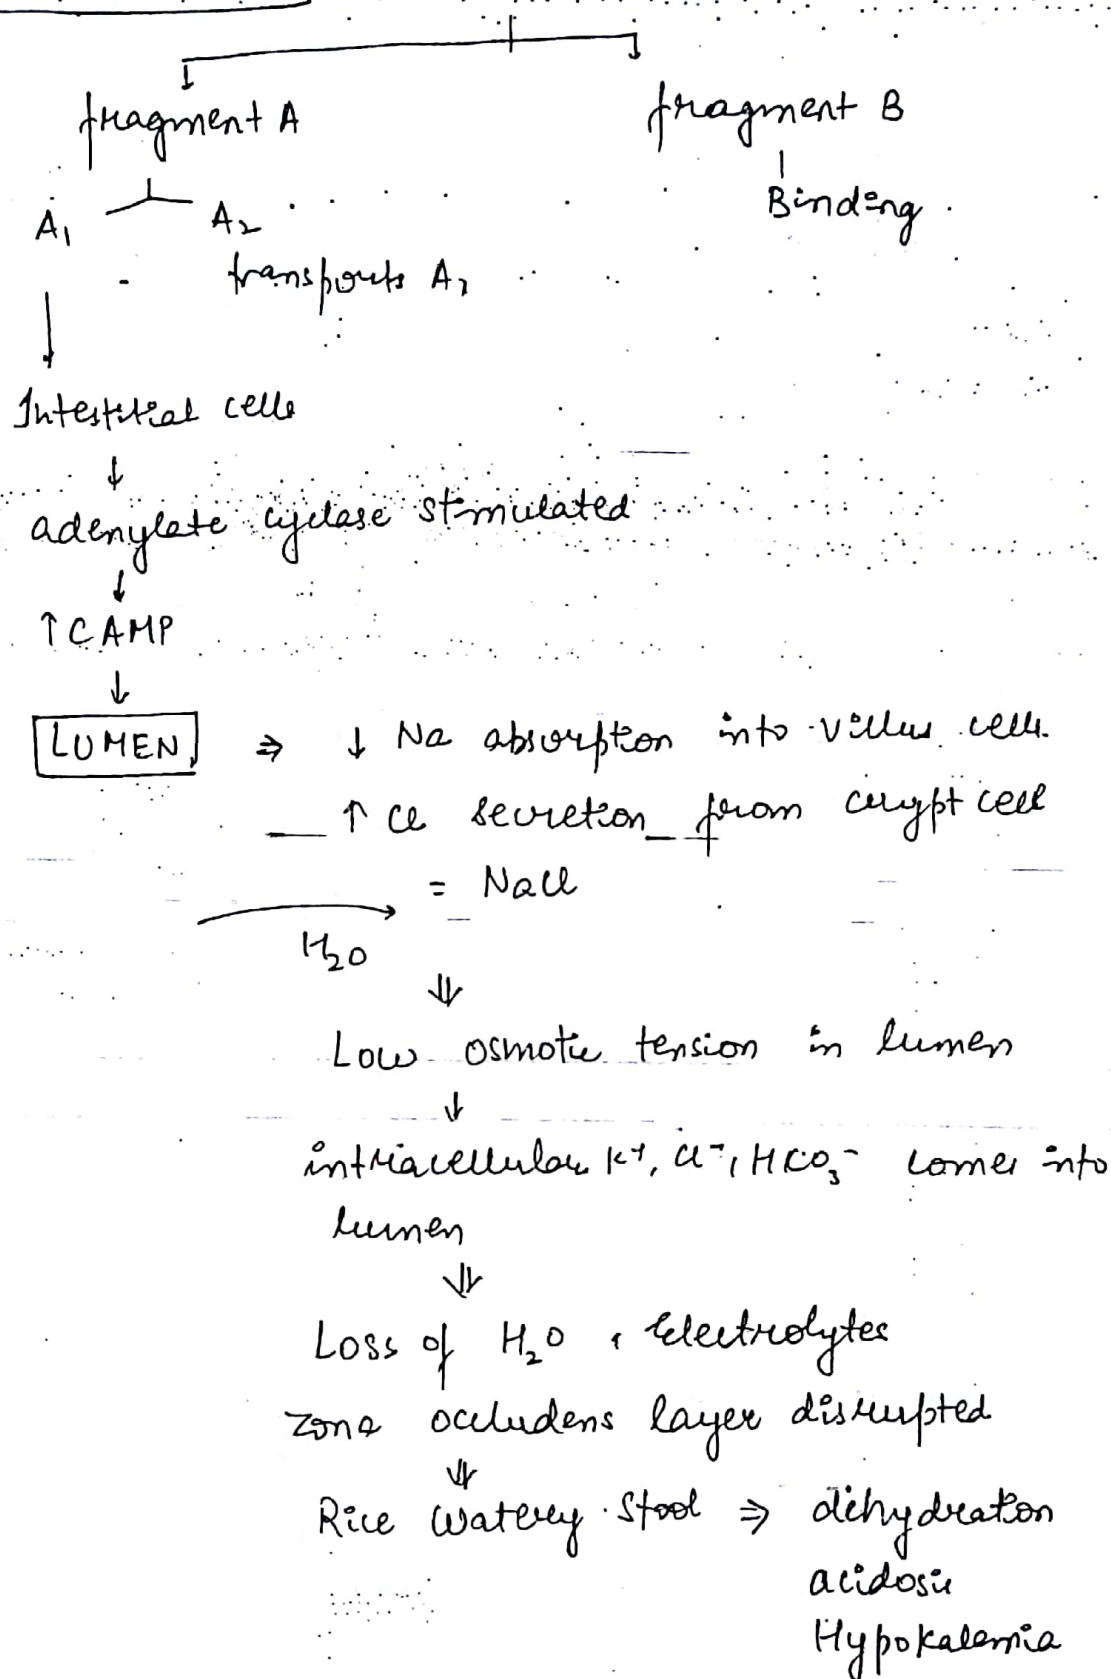 fragment A fragment B
A1 A2 Binding
transports A1
Intestitial cells
↓
adenylate cyclase stimulated
↓
↑ CAMP
↓
LUMEN ⇒ ↓ Na absorption into villus cells.
↑ Cl secretion from crypt cell
= NaCl
H2O
⇓
Low osmotic tension in lumen
↓
intracellular K+, Cl-, HCO3- comes into
lumen
⇓
Loss of H2O & Electrolytes
Zona occludens layer disrupted
⇓
Rice Watery Stool ⇒ dehydration
acidosis
Hypokalemia